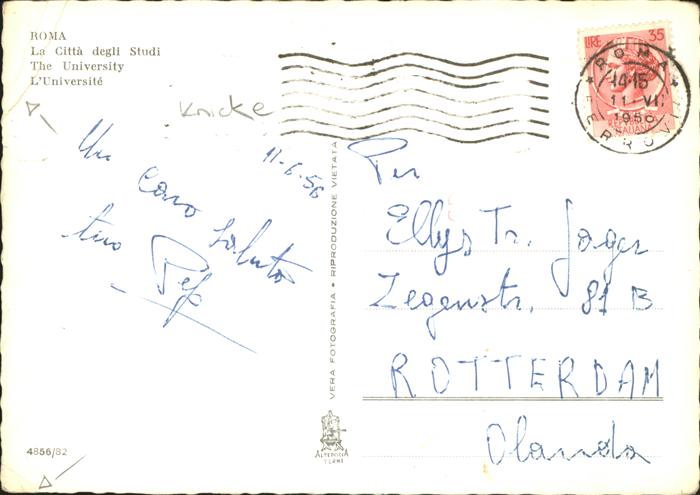 ROMA
La Città degli Studi
The University
L'Université
Knicke
11-6-56
Un
caro saluto
tuo Pep
4856/82
VERA FOTOGRAFIA • RIPRODUZIONE VIETATA
ALTEROCCA
TERNI
LIRE 35
REPUBBLICA
ITALIANA
ROMA FERROVIA
14-15
11 VI
1956
Per
Ellys Tr. Jager
Zegenstr. 81 B
ROTTERDAM
Olanda